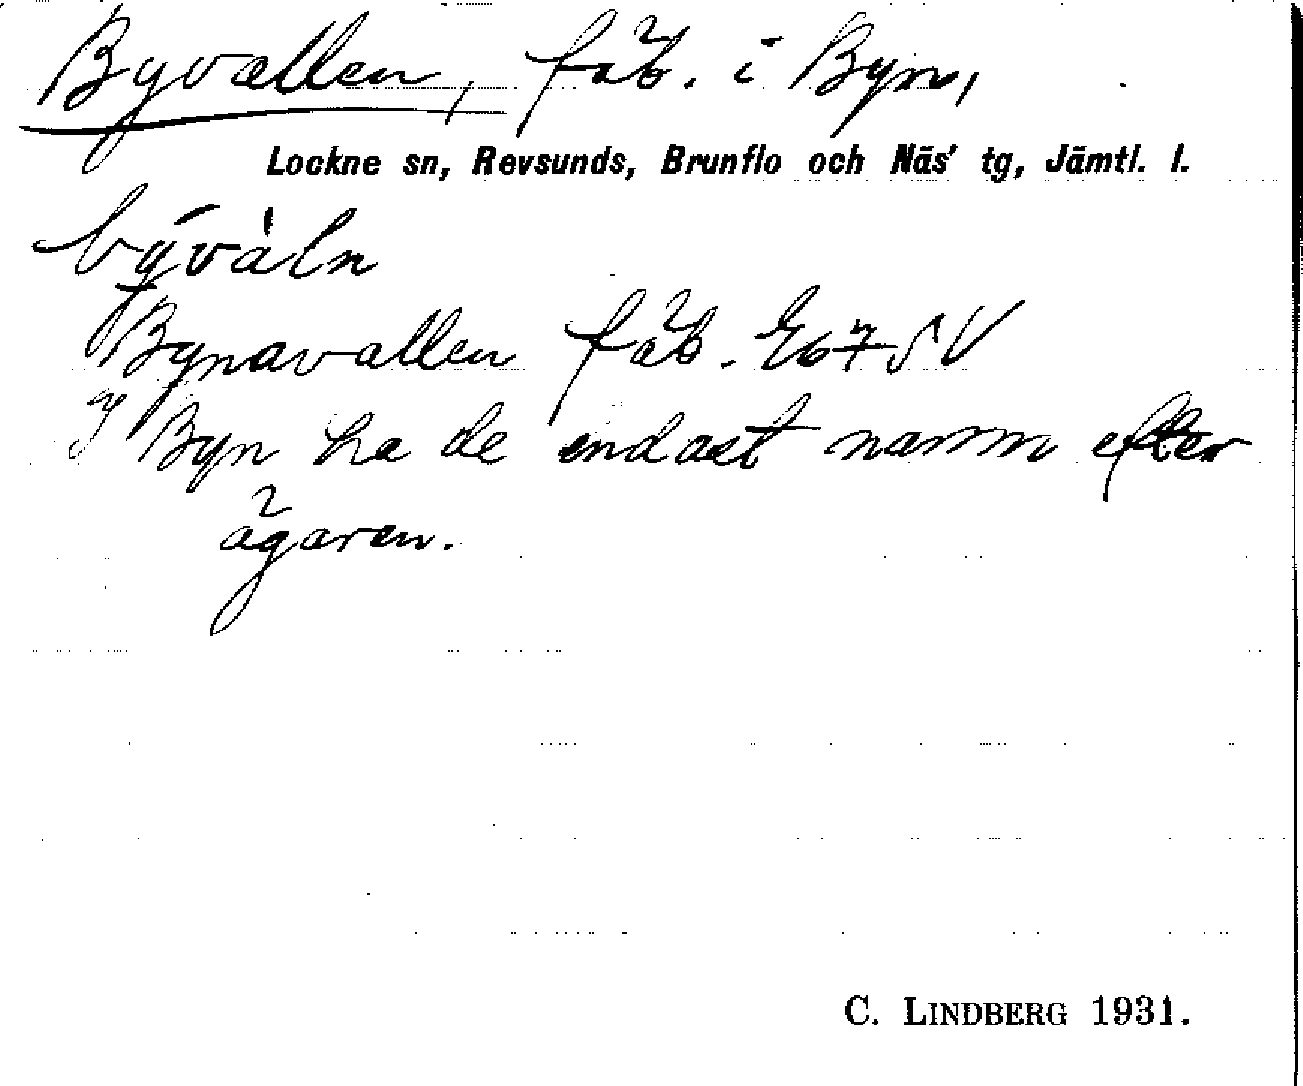 Byvallen, fäb. i Byn,
Lockne sn, Revsunds, Brunflo och Näs' tg, Jämtl. l.
bȳvàln
Bynavallen fäb. E67SV
I Byn ha de endast namn efter
ägaren.
C. LINDBERG 1931.